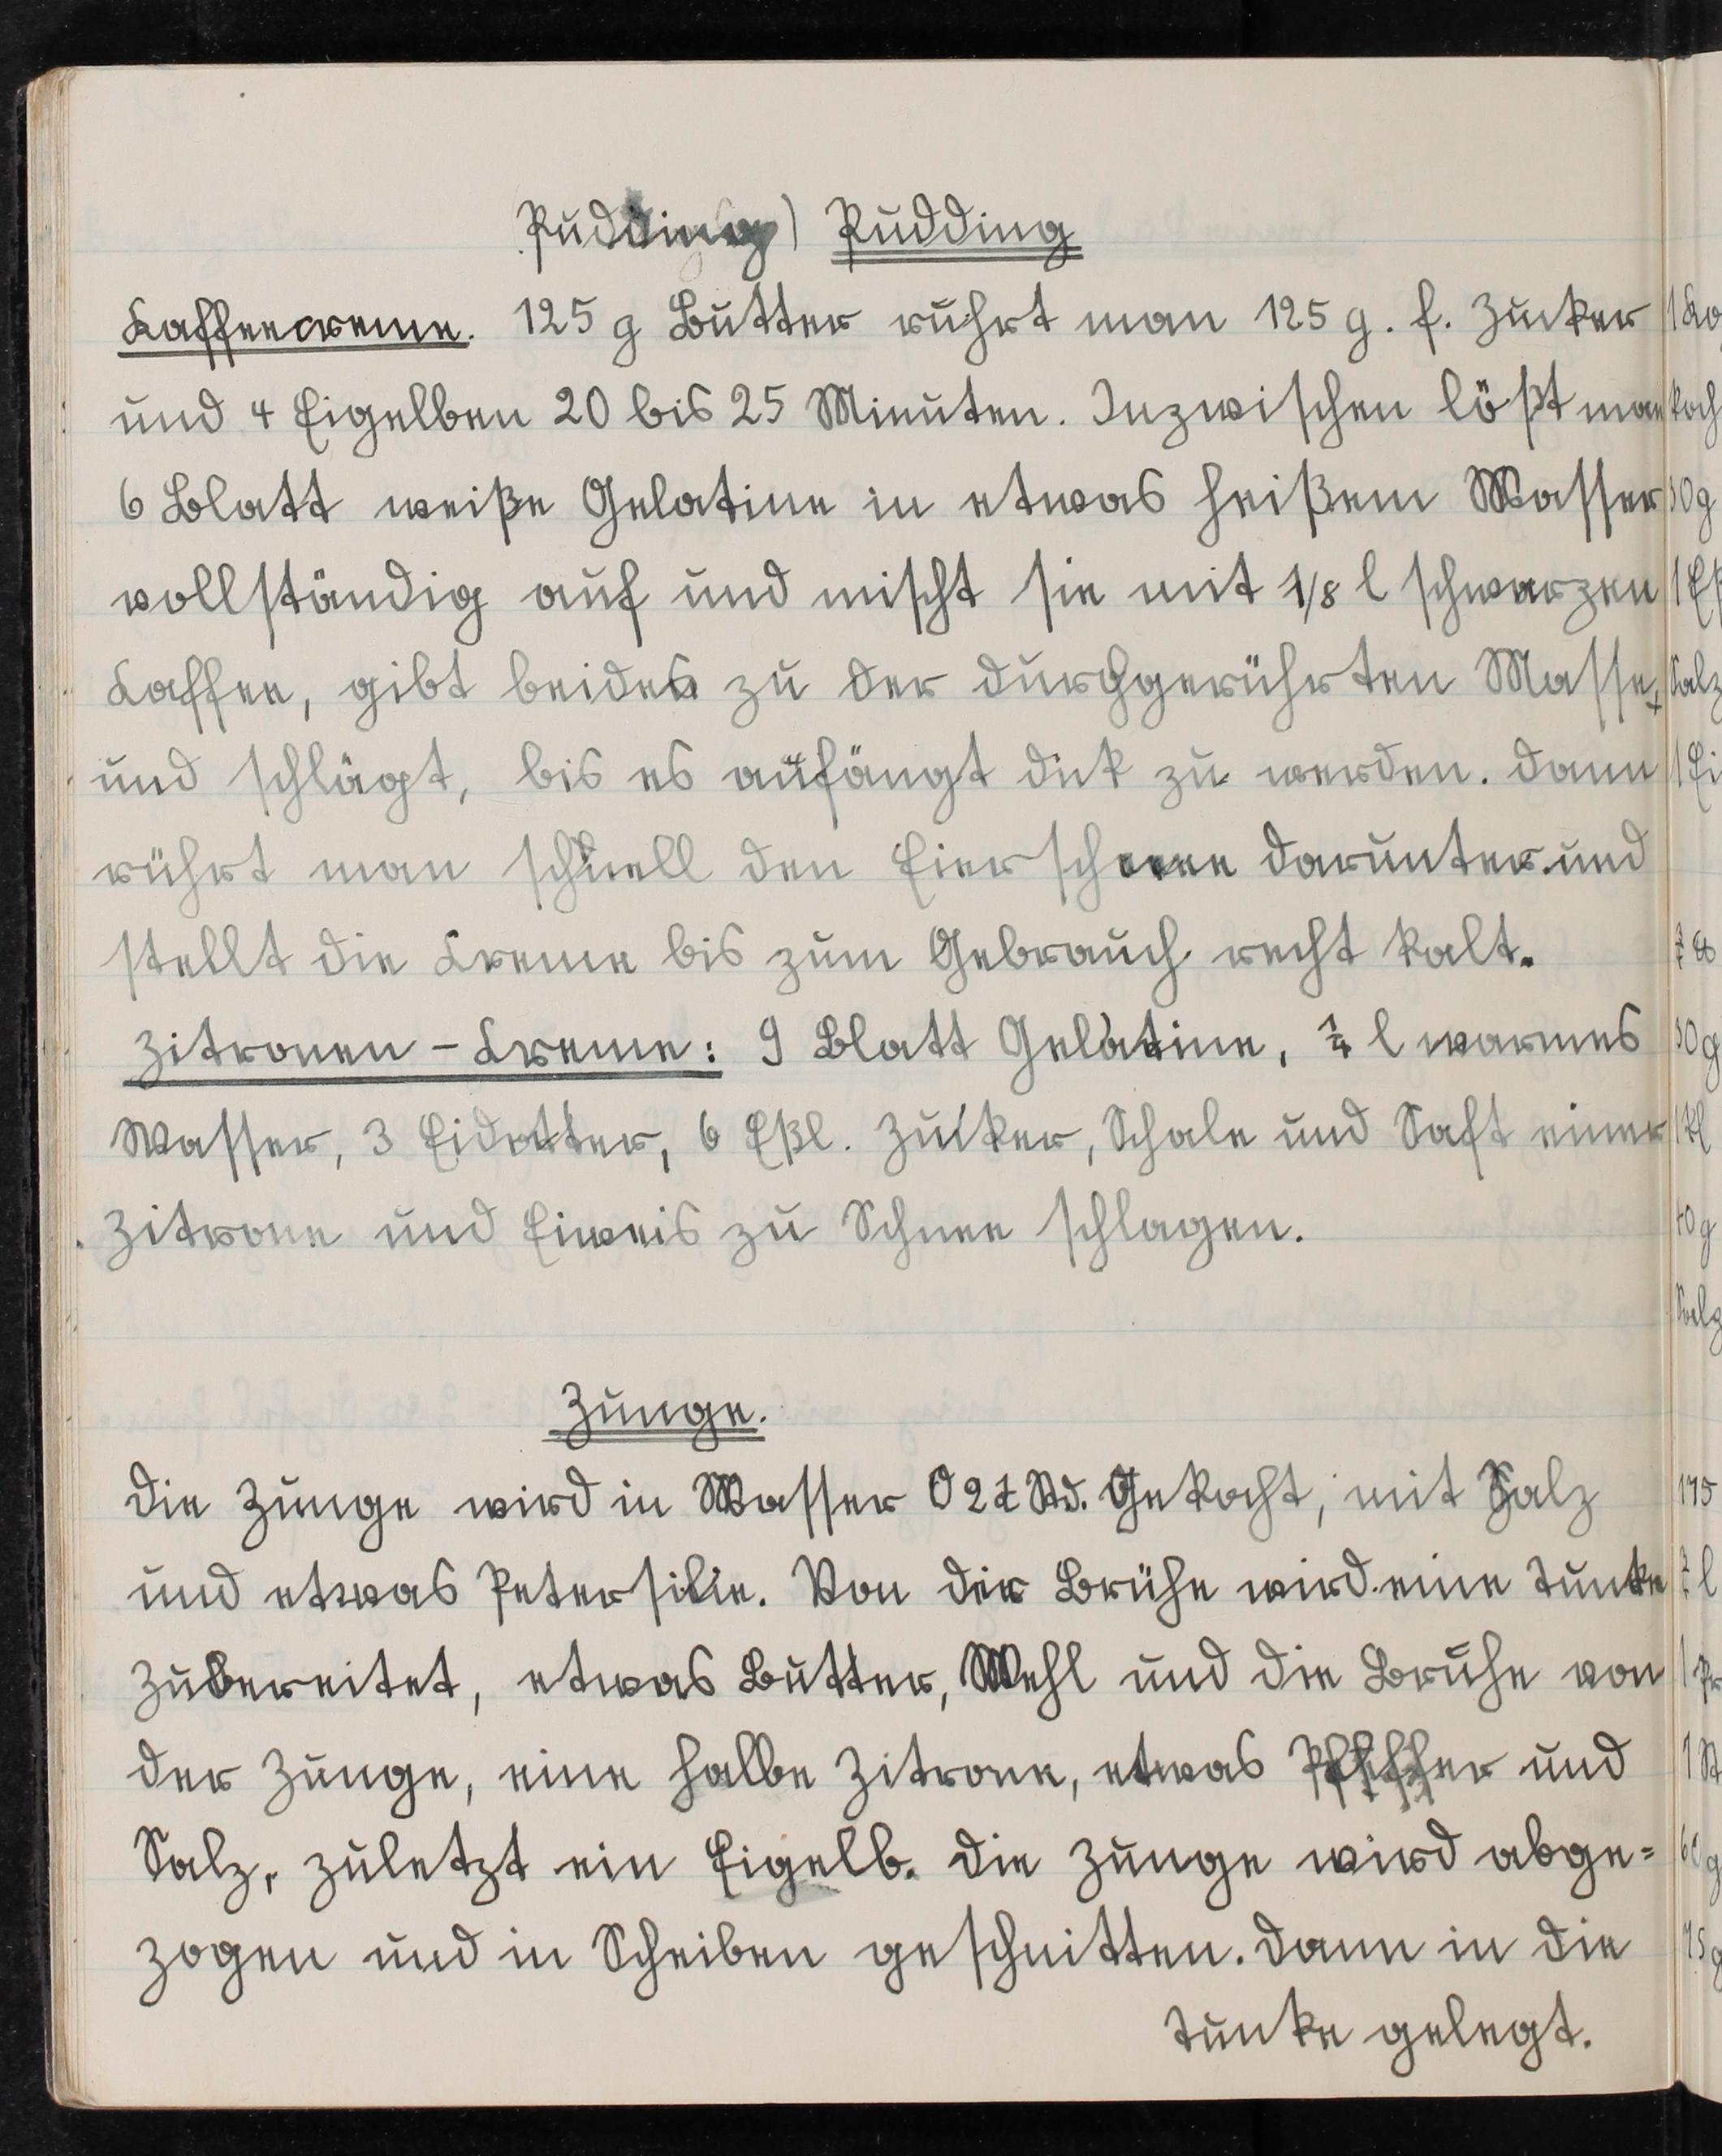 Pudding) Pudding
Kaffeecreme. 125 g Butter rührt man 125 g. f. Zucker
und 4 Eigelben 20 bis 25 Minuten. Inzwischen lößt man
6 Blatt weiße Gelatine in etwas heißem Wasser
vollständig auf und mischt sie mit 1/8 l schwarzen
Kaffee, gibt beides zu der durchgerührten Masse,
und schlägt, bis es anfängt dick zu werden. Dann
rührt man schnell den Eierschnee darunter und
stellt die Kreme bis zum Gebrauch recht kalt.
Zitronen - Kreme: 9 Blatt Gelatine, 1/4 l warmes
Wasser, 3 Eidotter, 6 Eßl. Zucker, Schale und Saft einer
Zitrone und Eiweis zu Schnee schlagen.
Zunge.
Die Zunge wird in Wasser 2 Std. Gekocht, mit Salz
und etwas Petersilie. Von der Brühe wird eine Tunke
zubereitet, etwas Butter, Mehl und die Brühe von
der Zunge, eine halbe Zitrone, etwas Pfeffer und
Salz, zuletzt ein Eigelb. Die Zunge wird abge=
zogen und in Scheiben geschnitten. Dann in die
Tunke gelegt.